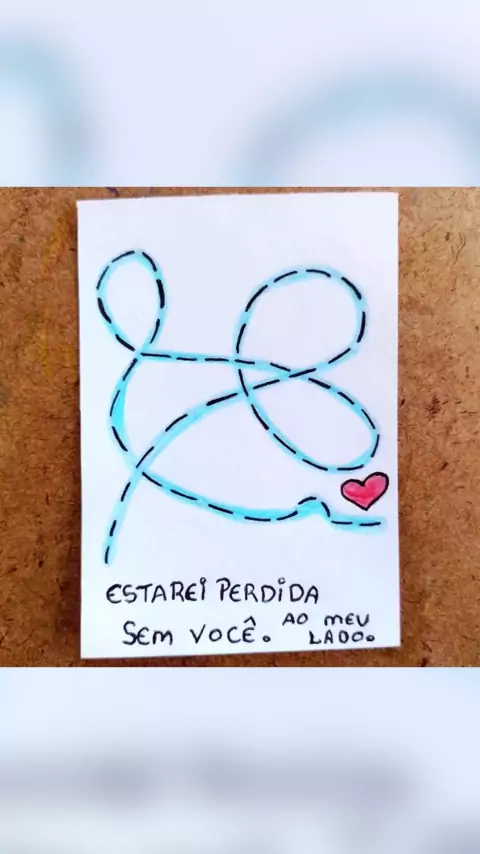 ESTAREI PERDIDA
SEM VOCÊ. AO MEU
LADO.